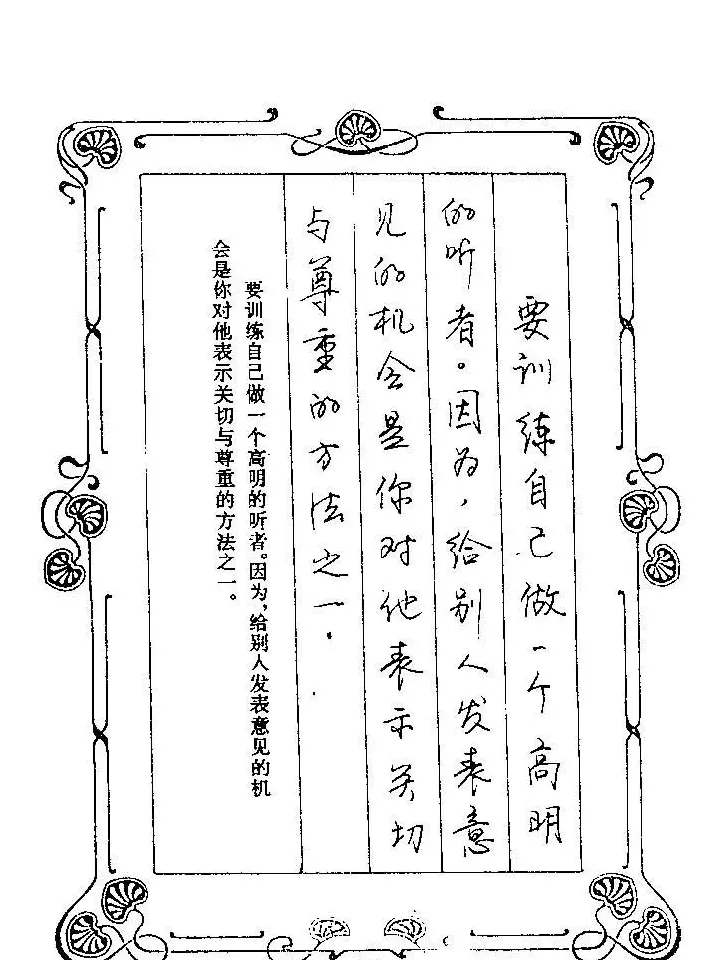 要训练自己做一个高明
的听者。因为,给别人发表意
见的机会是你对他表示关切
与尊重的方法之一.
要训练自己做一个高明的听者。因为,给别人发表意见的机
会是你对他表示关切与尊重的方法之一。